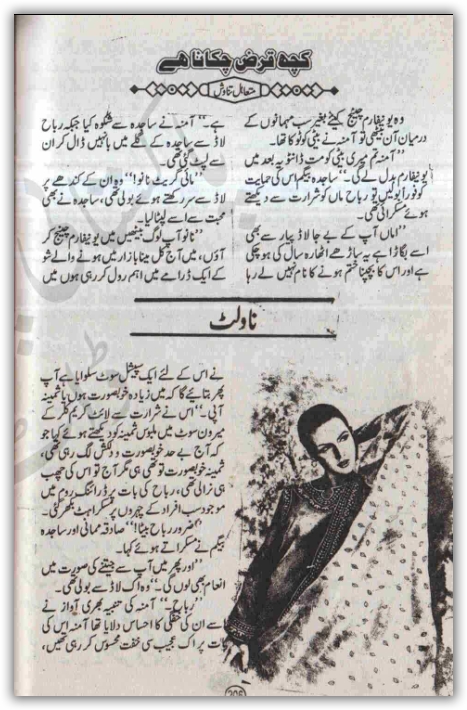 کچھ قرض چکانا ہے
وہ یونیفارم چینج کیئے بغیر سب مہمانوں کے
درمیان آن بیٹھی تو آمنہ نے بیٹی کو ٹوکا تھا۔
”آمنہ تم میری بیٹی کو مت ڈانٹو یہ بعد میں
یونیفارم بدل لے گی۔“ ساجدہ بیگم اس کی حمایت
کو فوراً بولیں تو رباح ماں کو شرارت سے دیکھتے
ہوئے مسکرائی تھی۔
”اماں آپ کے بے جا لاڈ پیار سے بھی
اسے بگاڑا ہے یہ ساڑھے اٹھارہ سال کی ہو چکی
ہے اور اس کا بچپنا ختم ہونے کا نام نہیں لے رہا
ہے۔“ آمنہ نے ساجدہ سے شکوہ کیا جبکہ رباح
لاڈ سے ساجدہ کے گلے میں بانہیں ڈال کر ان
سے لپٹ گئی تھی۔
”مائی گریٹ نانو!“ وہ ان کے کندھے پر
لاڈ سے سر رکھتے ہوئے بولی تھی، ساجدہ نے بھی
محبت سے اسے لپٹا لیا۔
”نانو آپ لوگ بیٹھیں میں یونیفارم چینج کر
آؤں، میں آج کل مینا بازار میں ہونے والے شو
کے ایک ڈرامے میں اہم رول کر رہی ہوں میں
ناولٹ
نے اس کے لئے ایک سپیشل سوٹ سلوایا ہے آپ
پھر بتائیے گا کہ میں زیادہ خوبصورت ہوں یا ثمینہ
آپی۔“ اس نے شرارت سے لائٹ کریم کلر کے
میرون سوٹ میں ملبوس ثمینہ کو دیکھتے ہوئے کہا جو
کہ آج بے حد خوبصورت و دلکش لگ رہی تھی،
خوبصورت تو تھی ہی مگر آج تو اس کی چھب
ہی نرالی تھی، رباح کی بات پر ڈرائنگ روم میں
موجود سب افراد کے چہروں پر مسکراہٹ بکھر گئی۔
”ضرور رباح بیٹا!“ صادقہ ممانی اور ساجدہ
بیگم نے مسکراتے ہوئے کہا۔
”اور پھر میں آپ سے جیتنے کی صورت میں
انعام بھی لوں گی۔“ وہ اک لاڈ سے بولی تھی۔
”رباح۔“ آمنہ کی تنبیہ بھری آواز نے
اسے ان کی خفگی کا احساس دلایا تھا آمنہ اس کی
بات پر اک عجیب سی خفت محسوس کر رہی تھیں،
205